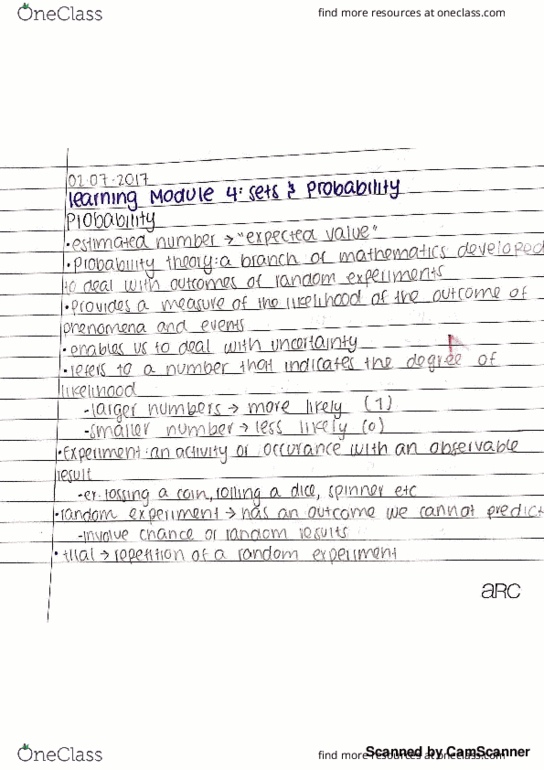 OneClass find more resources at oneclass.com
02.07.2017
learning Module 4: sets & Probability
Probability
• estimated number → "expected value"
• Probability theory: a branch of mathematics developed
to deal with outcomes of random experiments
• Provides a measure of the likelihood of the outcome of
phenomena and events
• enables us to deal with uncertainty
• refers to a number that indicates the degree of
likelihood
- larger numbers → more likely (1)
- smaller number → less likely (0)
• Experiment: an activity or occurance with an observable
result
- ex. tossing a coin, rolling a dice, spinner etc
• random experiment → has an outcome we cannot predict
- involve chance or random results
• trial → repetition of a random experiment
aRC
OneClass find more resources at oneclass.com
Scanned by CamScanner